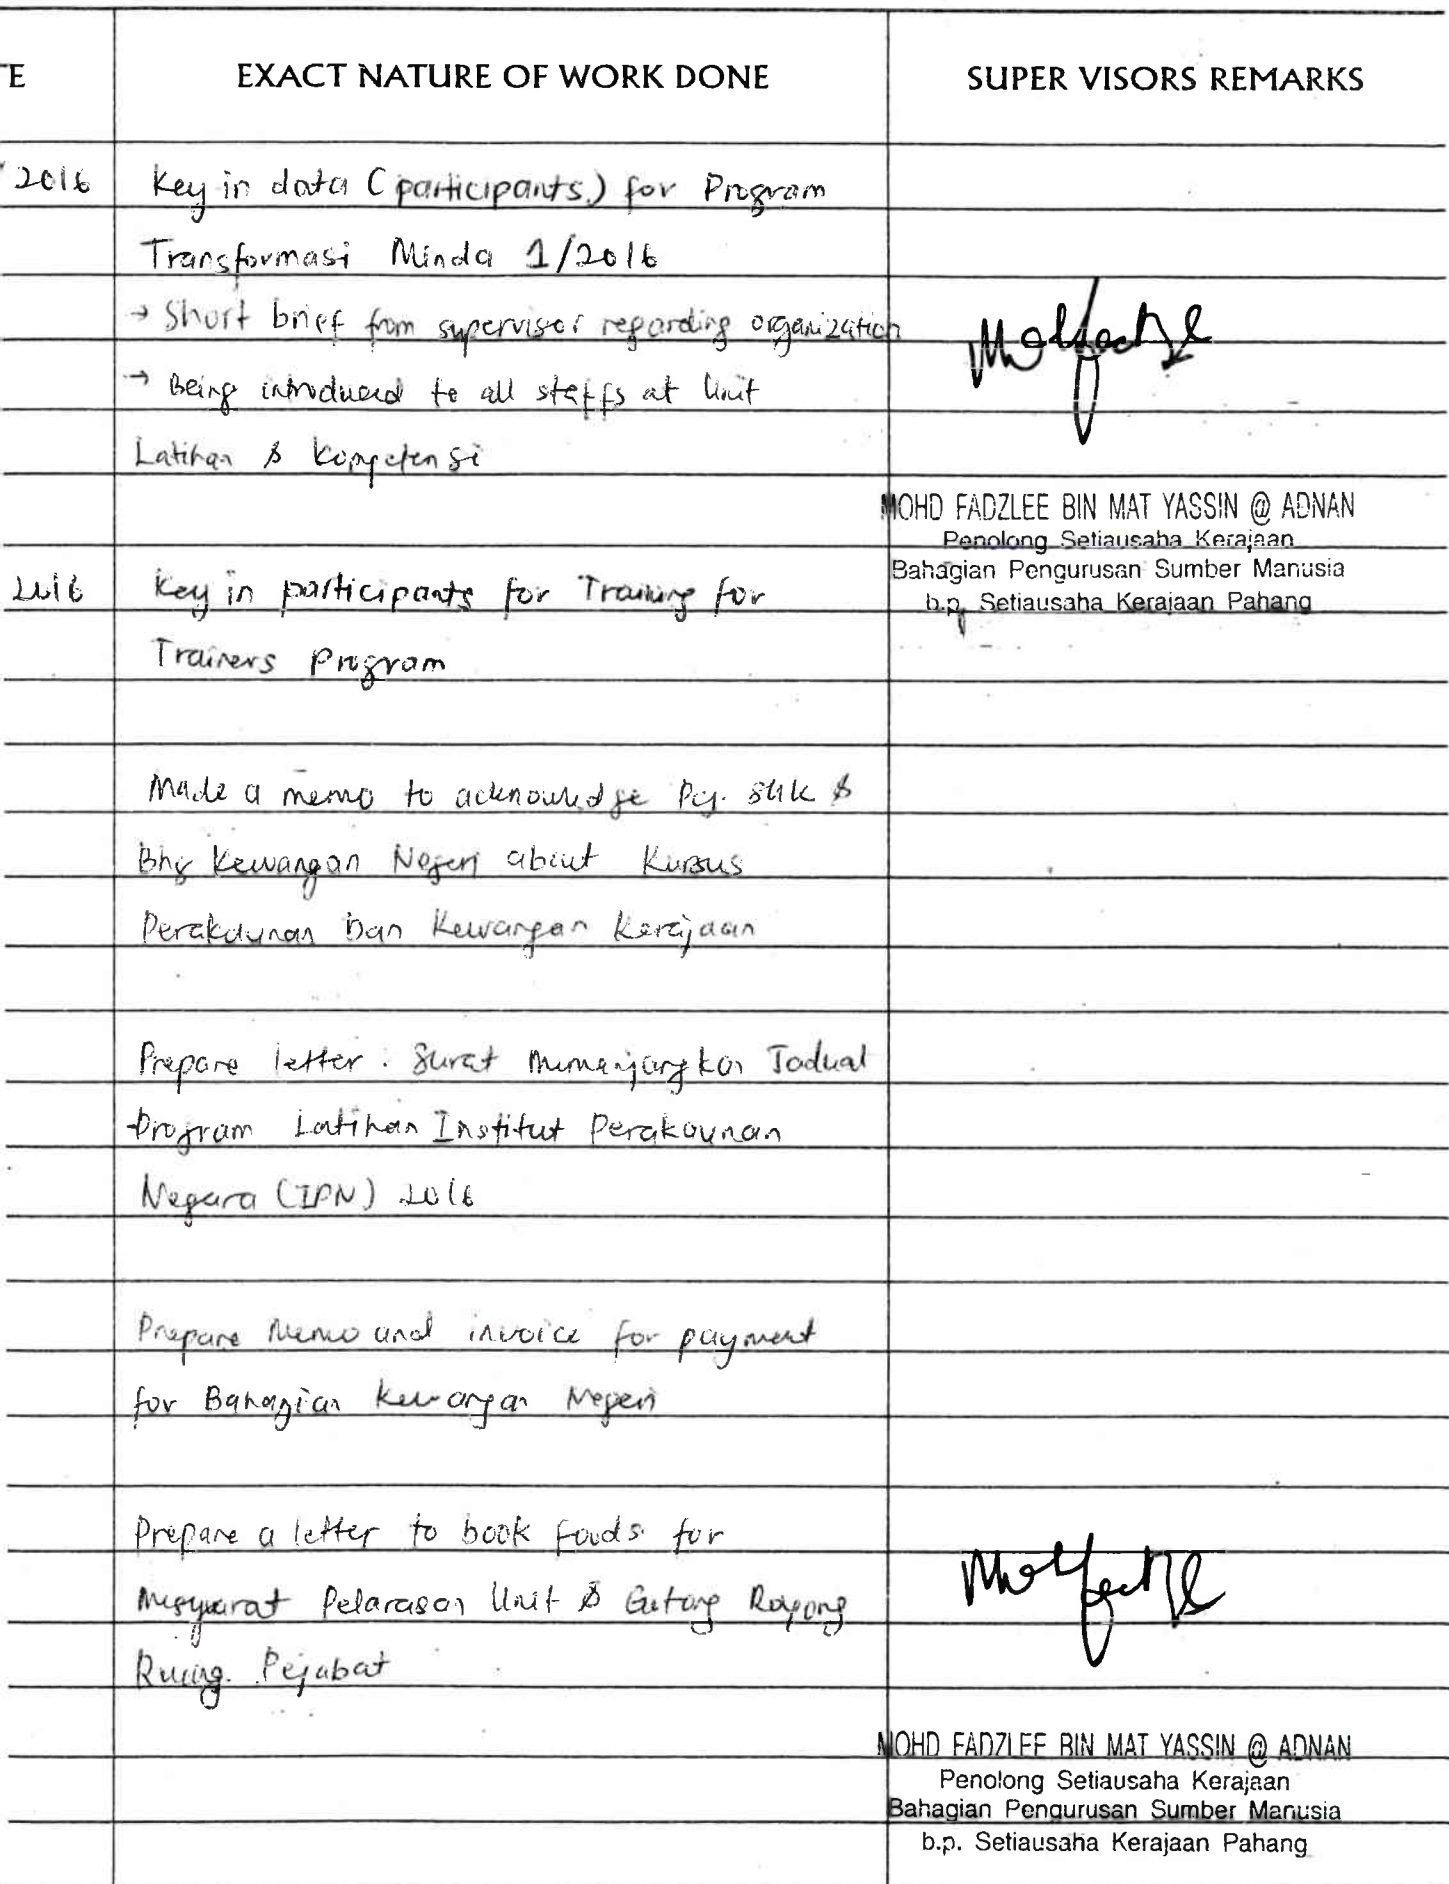 E
EXACT NATURE OF WORK DONE
SUPER VISORS REMARKS
2016
Key in data (participants.) for Program
Transformasi Minda 1/2016
→ Short brief from supervisor regarding organization
→ Being introduced to all staffs at Unit
Latihan & Kompetensi
MOHD FADZLEE BIN MAT YASSIN @ ADNAN
Penolong Setiausaha Kerajaan
Bahagian Pengurusan Sumber Manusia
b.p. Setiausaha Kerajaan Pahang
2016
Key in participants for Training for
Trainers Program
Made a memo to acknowledge Pej. SUK &
Bhg Kewangan Negeri about Kursus
Perakaunan Dan Kewangan Kerajaan
Prepare letter : Surat Memanjangkan Jadual
Program Latihan Institut Perakaunan
Negara (IPN) 2016
Prepare Memo and invoice for payment
for Bahagian Kewangan Negeri
Prepare a letter to book foods for
Mesyuarat Pelarasan Unit & Gotong Royong
Ruang Pejabat
MOHD FADZLEE BIN MAT YASSIN @ ADNAN
Penolong Setiausaha Kerajaan
Bahagian Pengurusan Sumber Manusia
b.p. Setiausaha Kerajaan Pahang